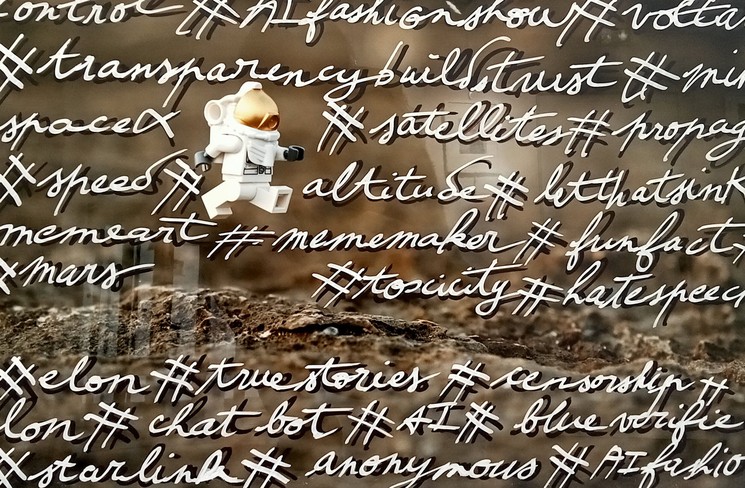 ontrol #AIfashionshow# volta
#transparencybuildstrust #mi
spaceX #satellites# propag
#speed# altitude# letthatsink
memeart #mememaker# funfact
#mars #toxicity#hatespeec
#elon#truestories #censorship #
lon# chat bot #AI# blue verifie
#starlink# anonymous #AIfashio